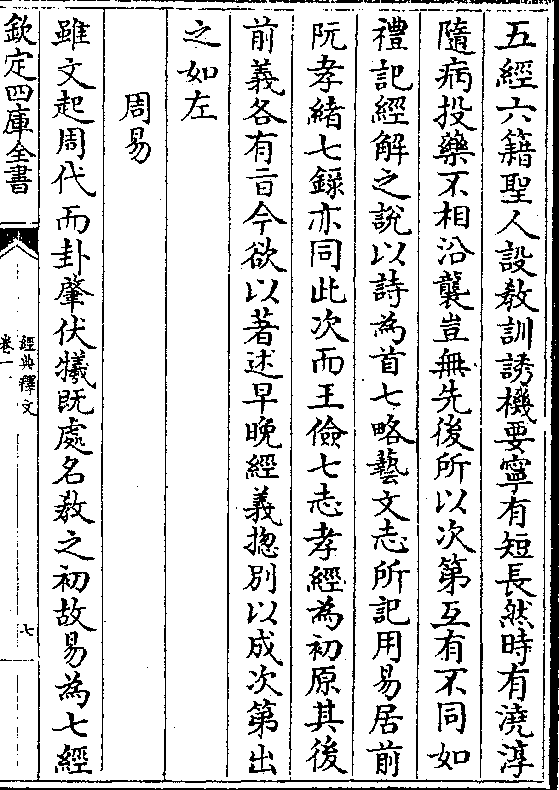 五經六籍聖人設教訓誘機要寧有短長然時有澆淳
隨病投藥不相沿襲豈無先後所以次第互有不同如
禮記經解之說以詩為首七略藝文志所記用易居前
阮孝緒七錄亦同此次而王儉七志孝經為初原其後
前義各有旨今欲以著述早晚經義揔別以成次第出
之如左
周易
雖文起周代而卦肇伏犧既處名教之初故易為七經
欽定四庫全書
經典釋文
卷一
七